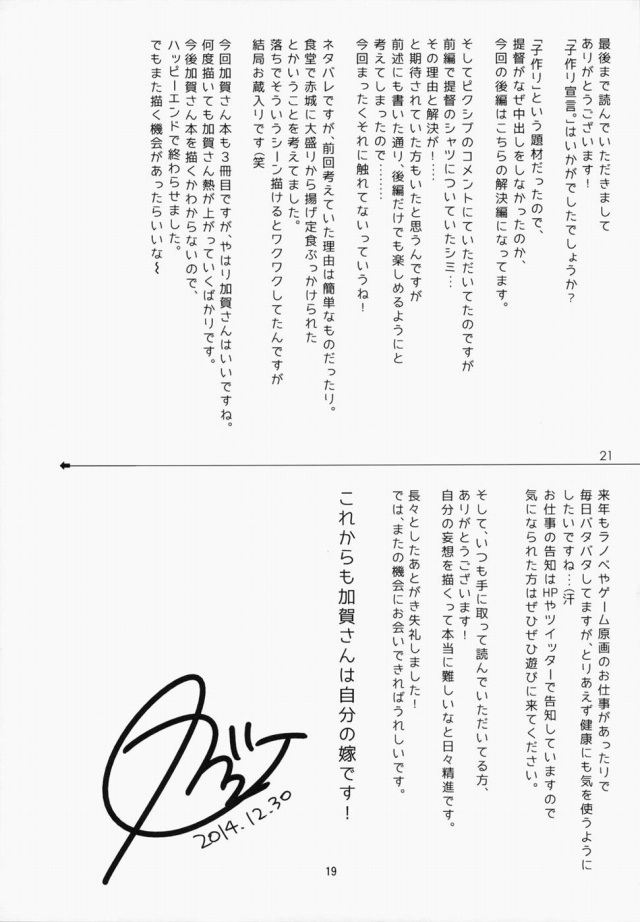 最後まで読んでいただきまして
ありがとうございます!
「子作り宣言。」はいかがでしたでしょうか?
「子作り」という題材だったので、
提督がなぜ中出しをしなかったのか、
今回の後編はこちらの解決編になってます。
そしてピクシブのコメントにていただいてたのですが
前編で提督のシャツについていたシミ…
その理由と解決が!……
と期待されていた方もいたと思うんですが
前述にも書いた通り、後編だけでも楽しめるようにと
考えてしまったので………
今回まったくそれに触れてないっていうね!
ネタバレですが、前回考えていた理由は簡単なものだったり。
食堂で赤城に大盛りから揚げ定食ぶっかけられた
とかいうことを考えてました。
落ちでそういうシーン描けるとワクワクしてたんですが
結局お蔵入りです(笑
今回加賀さん本も3冊目ですが、やはり加賀さんはいいですね。
何度描いても加賀さん熱が上がっていくばかりです。
今後加賀さん本を描くかわからないので、
ハッピーエンドで終わらせました。
でもまた描く機会があったらいいな〜
21
来年もラノベやゲーム原画のお仕事があったりで
毎日バタバタしてますが、とりあえず健康にも気を使うように
したいですね…(汗
お仕事の告知はHPやツイッターで告知していますので
気になられた方はぜひぜひ遊びに来てください。
そして、いつも手に取って読んでいただいてる方、
ありがとうございます!
自分の妄想を描くって本当に難しいなと日々精進です。
長々としたあとがき失礼しました!
では、またの機会にお会いできればうれしいです。
これからも加賀さんは自分の嫁です!
2014.12.30
19